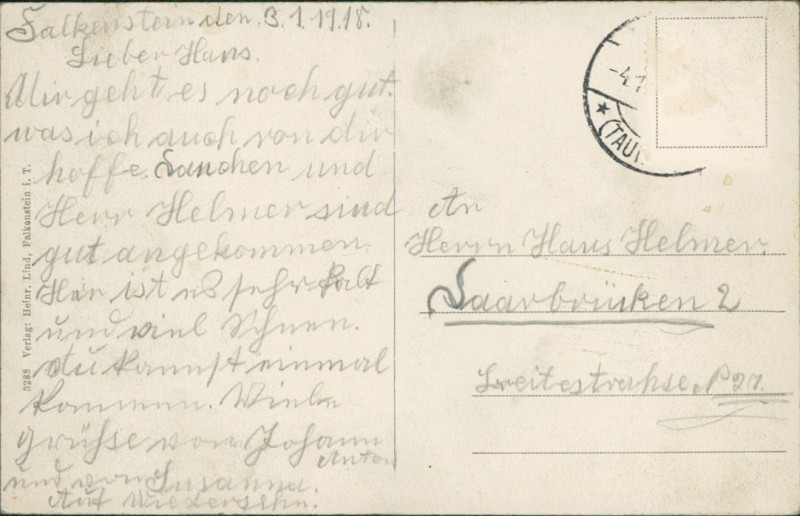 Falkenstein den 3.1.1918.
Lieber Hans.
Mir geht es noch gut.
was ich auch von dir
hoffe. und
Herr Helmer sind
gut angekommen.
Hier ist es sehr kalt
und viel Schnee.
du kannst einmal
kommen. Viele
grühse von Johann
Anton
und von Susanna.
Auf Wiedersehn.
3288 Verlag: Heinr. Lind, Falkenstein i. T.
-4.1
(TAU
An
Herrn Hans Helmer.
Saarbrücken 2
27.